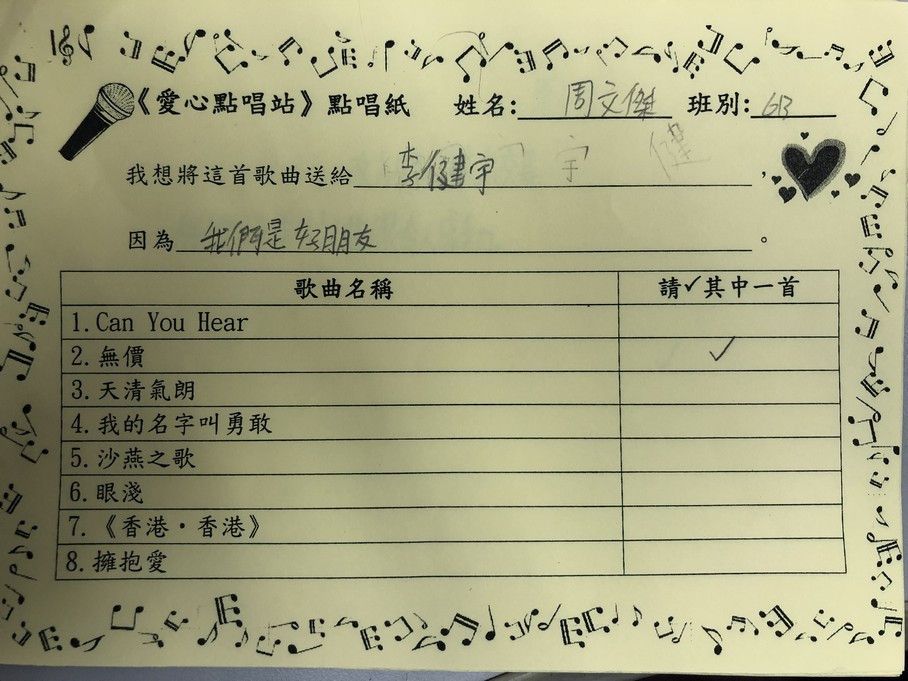 《愛心點唱站》點唱紙 姓名: 周文傑 班別: 6B
我想將這首歌曲送給 李健宇 宇 健 ,
因為 我們是好朋友 。
歌曲名稱 請✓其中一首
1. Can You Hear
2. 無價 ✓
3. 天清氣朗
4. 我的名字叫勇敢
5. 沙燕之歌
6. 眼淺
7. 《香港·香港》
8. 擁抱愛